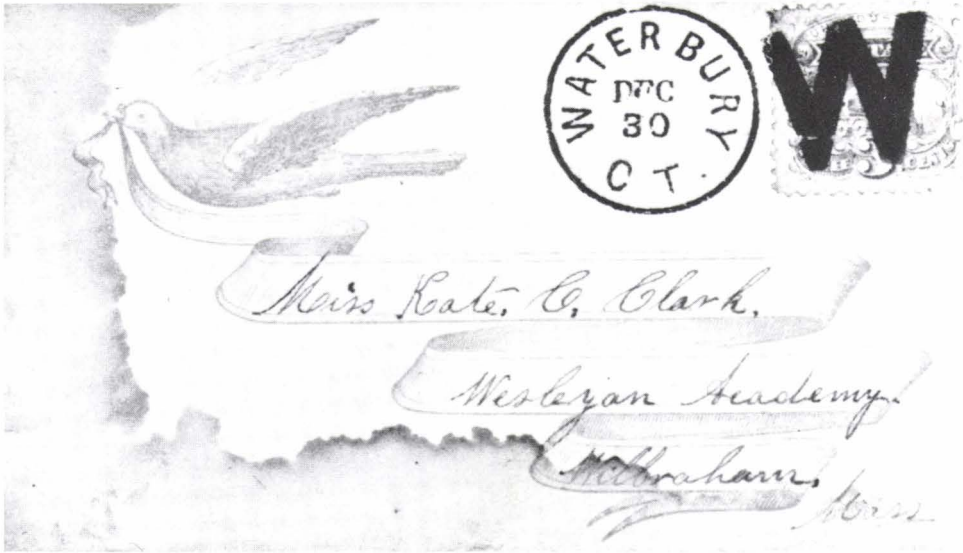 WATERBURY
DEC
30
CT.
W
Miss Kate. C. Clark.
Wesleyan Academy.
Wilbraham.
Mass